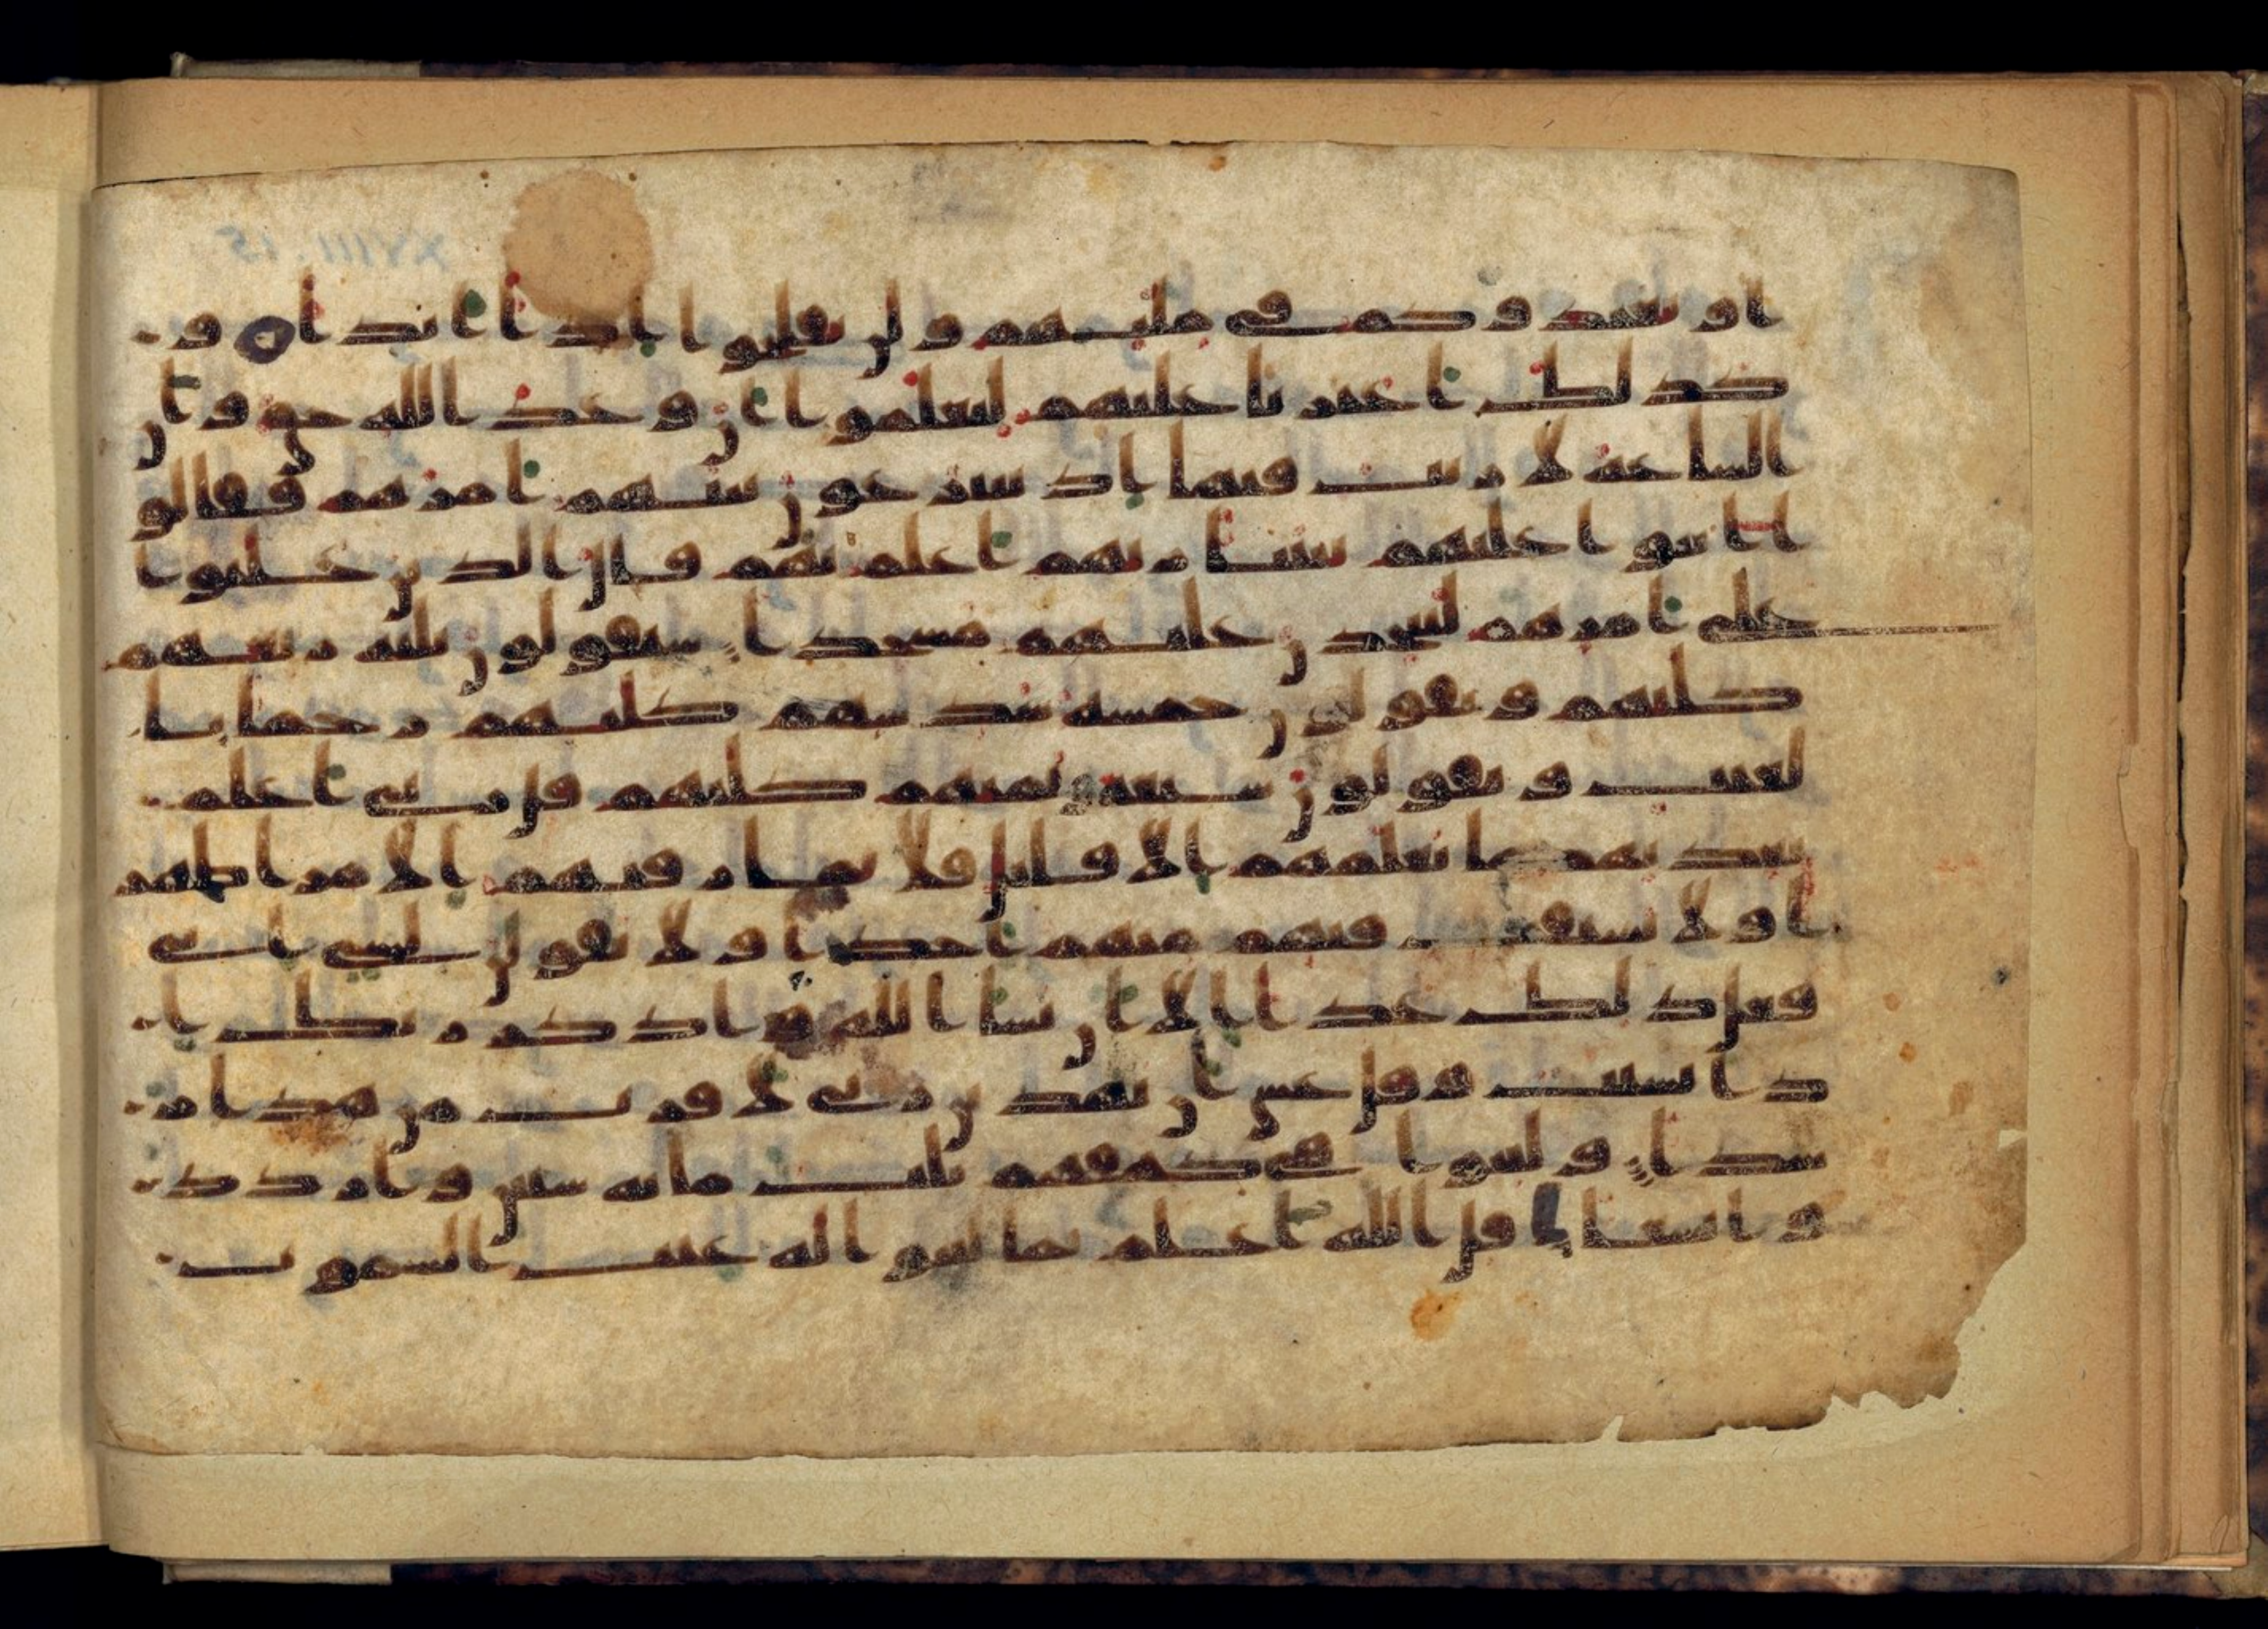 او يعيدوكم في ملتهم ولن تفلحوا اذا ابدا و
كذلك اعثرنا عليهم ليعلموا ان وعد الله حق وان
الساعة لا ريب فيها اذ يتنزعون بينهم امرهم فقالو
ا ابنوا عليهم بنينا ربهم اعلم بهم قال الذين غلبوا
على امرهم لنتخذن عليهم مسجدا سيقولون ثلثة ربعهم
كلبهم ويقولون خمسة سدسهم كلبهم رجما با
لغيب ويقولون سبعة وثمنهم كلبهم قل ربي اعلم
بعدتهم ما يعلمهم الا قليل فلا تمار فيهم الا مرا ظهر
ا ولا تستفت فيهم منهم احدا ولا تقولن لشي اني
فعل ذلك غدا الا ان يشا الله واذكر ربك ا
ذا نسيت وقل عسى ان يهدين ربي لاقرب من هذا ر
شدا ولبثوا في كهفهم ثلث مائة سنين وازدد
وا تسعا قل الله اعلم بما لبثوا له غيب السموت